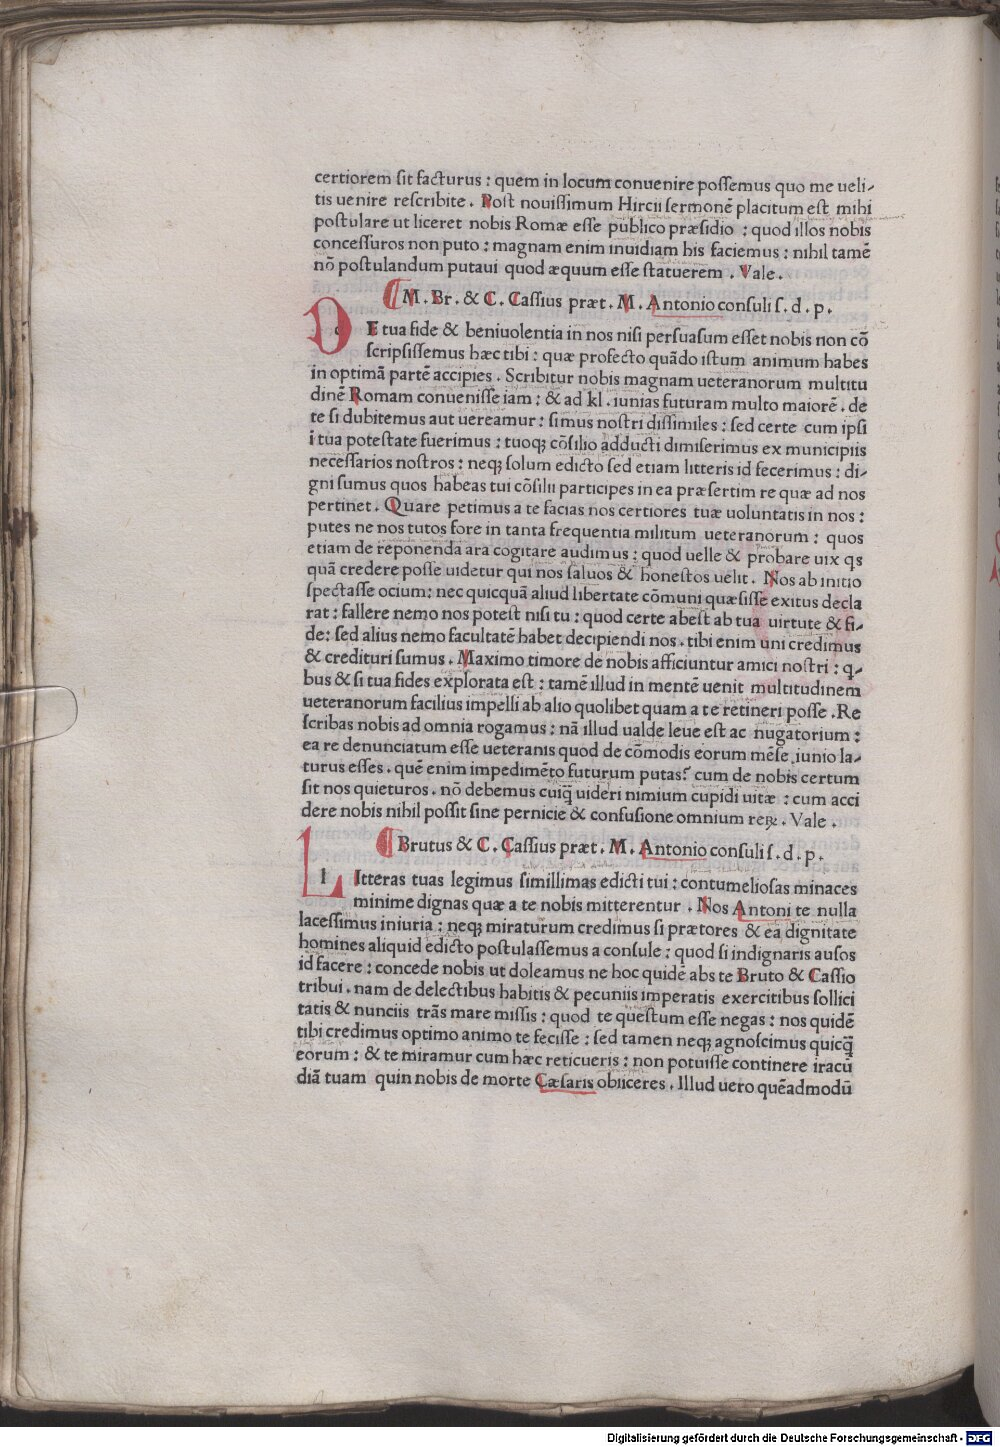 certiorem sit facturus : quem in locum conuenire possemus quo me ueli-
tis uenire rescribite . Post nouissimum Hircii sermonē placitum est mihi
postulare ut liceret nobis Romæ esse publico præsidio : quod illos nobis
concessuros non puto : magnam enim inuidiam his faciemus : nihil tamē
nō postulandum putaui quod æquum esse statuerem . Vale .
M . Br . & C . Cassius præt . M . Antonio consuli s . d . p .
DE tua fide & beniuolentia in nos nisi persuasum esset nobis non cō
scripsissemus hæc tibi : quæ profecto quādo istum animum habes
in optimā partē accipies . Scribitur nobis magnam ueteranorum multitu
dinē Romam conuenisse iam : & ad kl . iunias futuram multo maiorē . de
te si dubitemus aut uereamur : simus nostri dissimiles : sed certe cum ipsi
ī tua potestate fuerimus : tuoqꝫ cōsilio adducti dimiserimus ex municipiis
necessarios nostros : neqꝫ solum edicto sed etiam litteris id fecerimus : di-
gni sumus quos habeas tui cōsilii participes in ea præsertim re quæ ad nos
pertinet . Quare petimus a te facias nos certiores tuæ uoluntatis in nos :
putes ne nos tutos fore in tanta frequentia militum ueteranorum : quos
etiam de reponenda ara cogitare audimus : quod uelle & probare uix qs
quā credere posse uidetur qui nos saluos & honestos uelit . Nos ab initio
spectasse ocium : nec quicquā aliud libertate cōmuni quæsisse exitus decla
rat : fallere nemo nos potest nisi tu : quod certe abest ab tua uirtute & fi-
de : sed alius nemo facultatē habet decipiendi nos . tibi enim uni credimus
& credituri sumus . Maximo timore de nobis afficiuntur amici nostri : q-
bus & si tua fides explorata est : tamē illud in mentē uenit multitudinem
ueteranorum facilius impelli ab alio quolibet quam a te retineri posse . Re
scribas nobis ad omnia rogamus : nā illud ualde leue est ac nugatorium :
ea re denunciatum esse ueteranis quod de cōmodis eorum mēse iunio la-
turus esses . quē enim impedimēto futurum putas? cum de nobis certum
sit nos quieturos . nō debemus cuiq̄ uideri nimium cupidi uitæ : cum acci
dere nobis nihil possit sine pernicie & confusione omnium reꝝ . Vale .
Brutus & C . Cassius præt . M . Antonio consuli s . d . p .
LItteras tuas legimus simillimas edicti tui : contumeliosas minaces
minime dignas quæ a te nobis mitterentur . Nos Antoni te nulla
lacessimus iniuria : neqꝫ miraturum credimus si prætores & ea dignitate
homines aliquid edicto postulassemus a consule : quod si indignaris ausos
id facere : concede nobis ut doleamus ne hoc quidē abs te Bruto & Cassio
tribui . nam de delectibus habitis & pecuniis imperatis exercitibus sollici
tatis & nunciis trās mare missis : quod te questum esse negas : nos quidē
tibi credimus optimo animo te fecisse : sed tamen neqꝫ agnoscimus quicq̄
eorum : & te miramur cum hæc reticueris : non potuisse continere iracū
diā tuam quin nobis de morte Cæsaris obiiceres . Illud uero quēadmodū
Digitalisierung gefördert durch die Deutsche Forschungsgemeinschaft - DFG